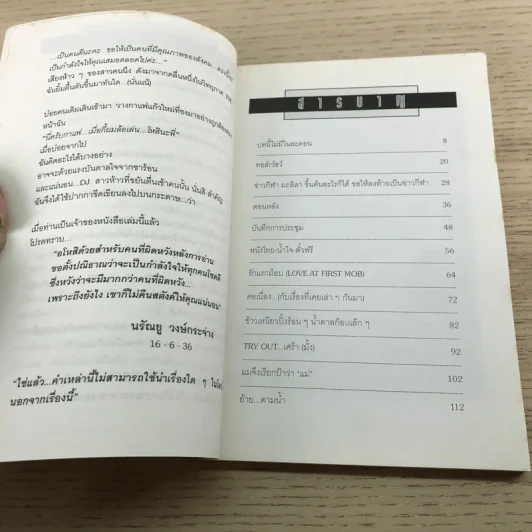 ...เป็นคนดีนะคะ ขอให้เป็นคนที่มีคุณภาพของสังคม
เป็นกำลังใจให้คุณเสมอตลอดไปค่ะ..."
เสียงห้าว ๆ ของสาวคนนึง ดังมาจากคลื่นหนึ่งในวิทยุภาค FM
ฉันยิ้มตื้นตันขึ้นมาทันใด...(นั่นแน่)
บ๋อยคนเดิมเดินเข้ามา วางกาแฟแก้วใหม่ที่ชงมาอย่างถูกต้อง
หน้าฉัน
"นี่ครับกาแฟ...เมื่อกี้ผมล้อเล่น...โทสินะพี่"
เมื่อบ๋อยจากไป
ฉันคิดอะไรได้บางอย่าง
อาจจะด้วยแรงบันดาลใจจากชาร้อน
และแน่นอน...DJ. สาวห้าวที่ขยันตื่นเช้าคนนั้น นั่นสิ สำคัญ
ฉันจึงได้ใช้ปากกาขีดเขียนลงไปบนกระดาษ...ว่า
เมื่อท่านเป็นเจ้าของหนังสือเล่มนี้แล้ว
โปรดทราบ...
"อโหสิด้วยสำหรับคนที่ผิดหวังหลังการอ่าน
ขอตั้งปณิธานว่าจะเป็นกำลังใจให้ทุกคนโชคดี
ซึ่งหวังว่าจะมีมากกว่าคนที่ผิดหวัง...
เพราะถึงยังไง เขาก็ไม่คืนสตังค์ให้คุณแน่นอน"
นรัณยู วงษ์กระจ่าง
16 - 6 - 36
"ใช่แล้ว...คำเหล่านี้ไม่สามารถใช้นำเรื่องใด ๆ
นอกจากเรื่องนี้"
สารบาญ
บทนี้ไม่มีในละคอน 8
ทอล์กโชว์ 20
ข่าวกีฬา มะลิลา ขึ้นต้นอะไรก็ได้ ขอให้ลงท้ายเป็นข่าวกีฬา 28
ตอนหลัง 36
บันทึกการประชุม 48
หนังไทย-น้ำใจ-ตั๋วฟรี 56
รักแรกม็อบ (LOVE AT FIRST MOB) 64
ต่อเนื่อง...(กับเรื่องที่เคยเล่า ๆ กันมา) 72
ข้าวเหนียวปิ้งร้อน ๆ น้ำตาลก้อนเล็ก ๆ 82
TRY OUT...เศร้า (มั้ง) 92
ผมจึงเรียกป้าว่า "แม่" 102
ย้าย...ตามน้ำ 112